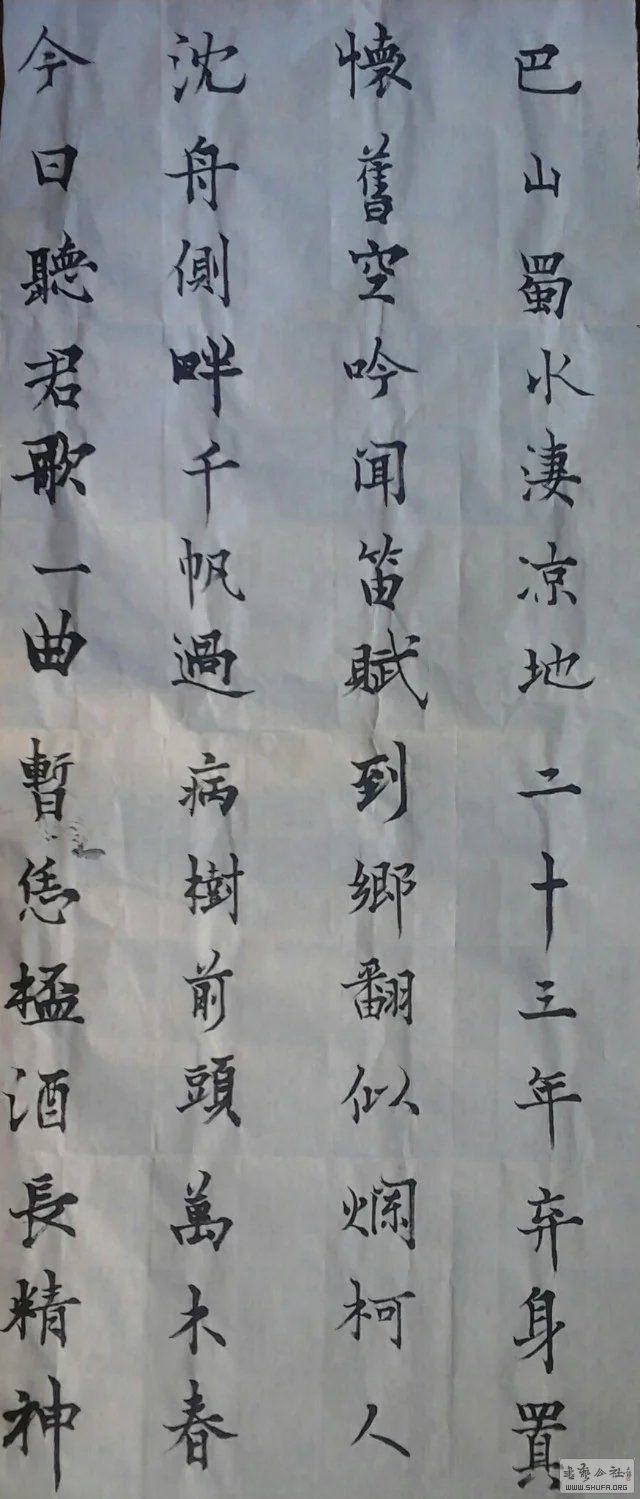 巴山蜀水淒凉地二十三年弃身置
懷舊空吟闻笛賦到鄉翻似爛柯人
沈舟側畔千帆過病樹前頭萬木春
今日聽君歌一曲暫恁榲酒長精神
WWW.SHUFA.ORG